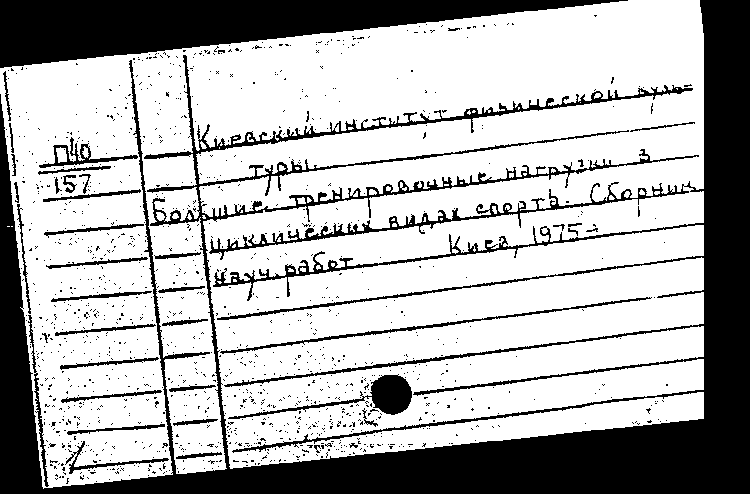 П40
157
Киевский институт физической куль=
туры.
Большие тренировочные нагрузки в
циклических видах спорта. Сборник
науч. работ Киев, 1975-